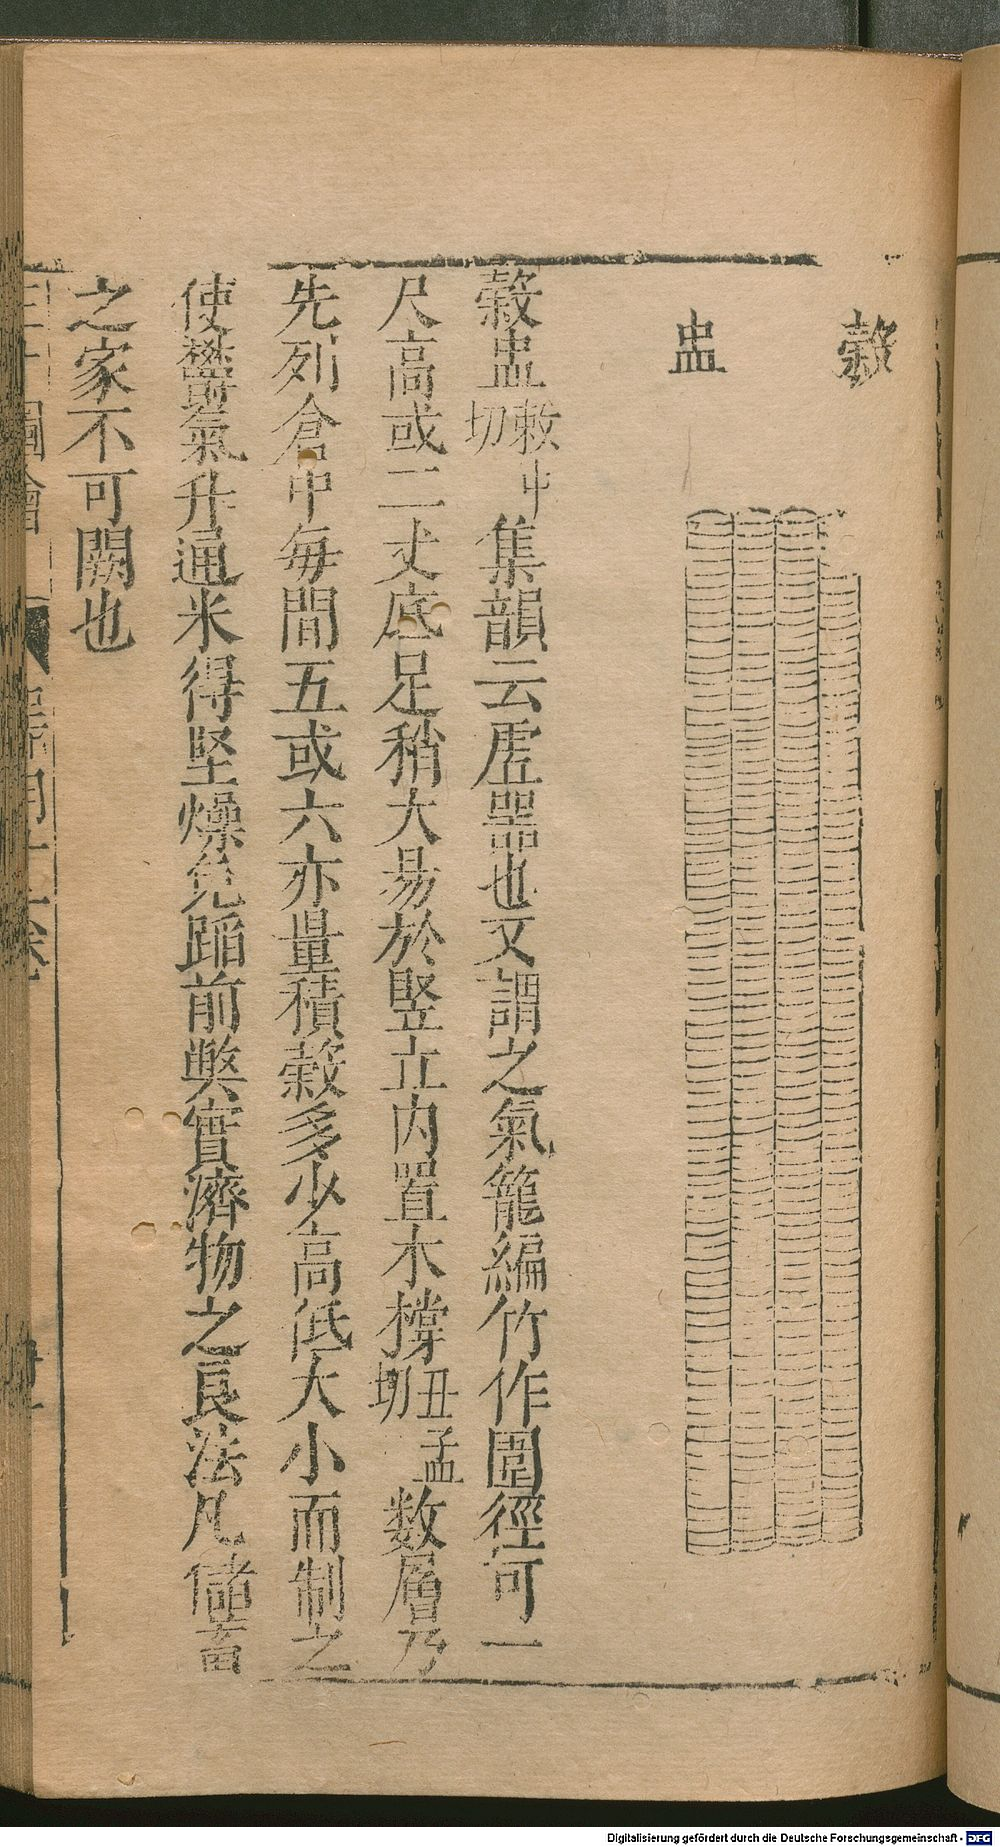 穀盅
穀盅敕中切集韻云虗器也又謂之氣籠編竹作圍徑可一
尺高或二丈底足稍大易於竪立内置木撑丑孟切數層乃
先列倉中每間五或六亦量積穀多少高低大小而制之
使鬱氣升通米得堅燥免蹈前獘實濟物之良法凡儲蓄
之家不可闕也
三才圖會
器用十
Digitalisierung gefördert durch die Deutsche Forschungsgemeinschaft - DFG